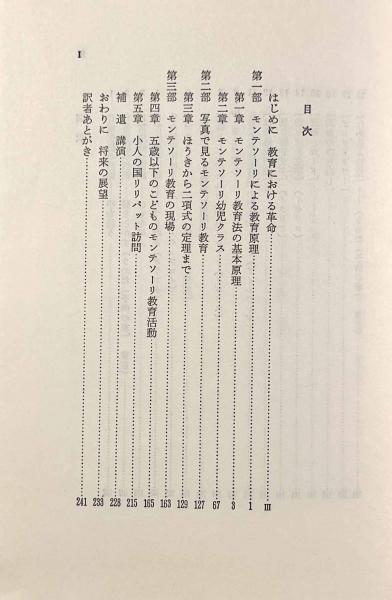 目次
はじめに 教育における革命……Ⅲ
第一部 モンテソーリによる教育原理……1
第一章 モンテソーリ教育法の基本原理……3
第二章 モンテソーリ幼児クラス……67
第二部 写真で見るモンテソーリ教育……127
第三章 ほうきから二項式の定理まで……129
第三部 モンテソーリ教育の現場……163
第四章 五歳以下のこどものモンテソーリ教育活動……165
第五章 小人の国リリパット訪問……215
補遺 講演……228
おわりに 将来の展望……233
訳者あとがき……241
I